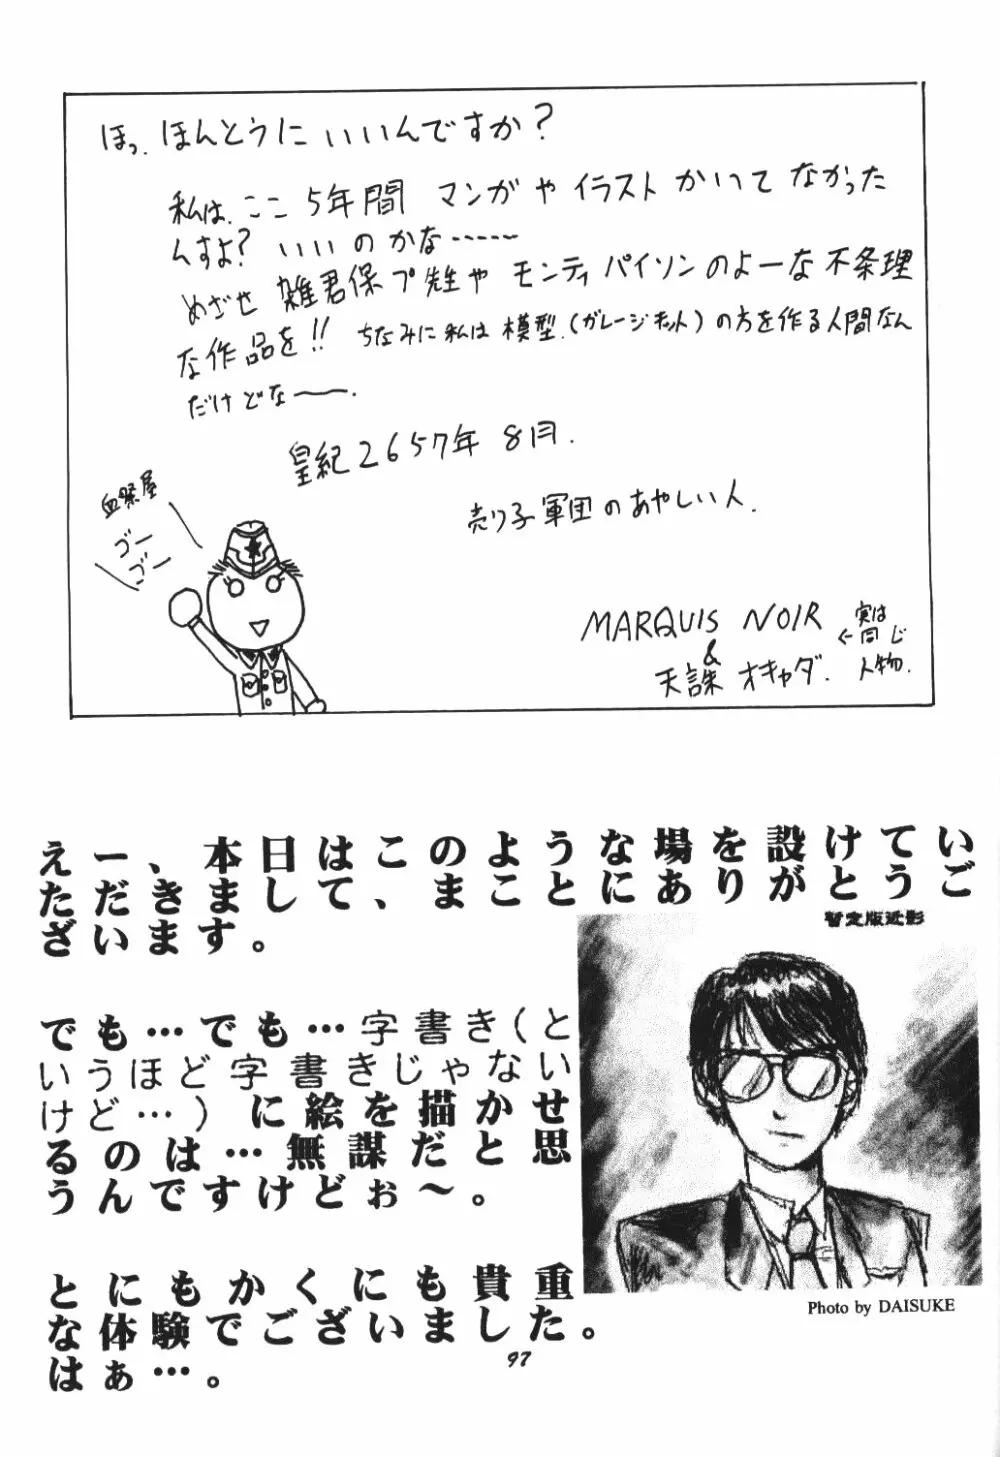 ほっ、ほんとうに いいんですか？
私は、ここ 5年間 マンガや イラスト かいて なかった
んすよ？ いいのかな……
めざせ 雑君保プ先生や モンティパイソンのよーな不条理
な作品を!! ちなみに私は 模型.(ガレージキット)の方を作る人間なん
だけどな〜〜.
皇紀2657年 8月.
売り子軍団のあやしい人.
血祭屋
ゴー
ゴー
MARQUIS NOIR
&
天誅 オキャダ.
実は
←同じ
人物.
えー、本日はこのような場を設けてい
ただきまして、まことにありがとうご
ざいます。
暫定版近影
でも…でも…字書き(と
いうほど字書きじゃない
けど…)に絵を描かせ
るのは…無謀だと思
うんですけどぉ〜。
とにもかくにも貴重
な体験でございました。
はぁ…。
Photo by DAISUKE
97